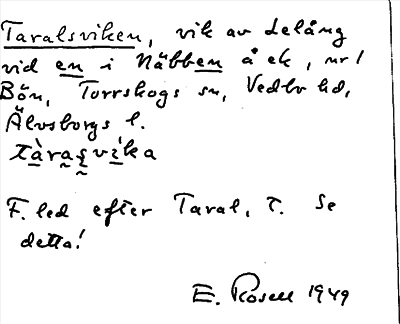 Taralsviken, vik av Lelång
vid en i Näbben å ek, nr 1
Bön, Torrskogs sn, Vedbo hd,
Älvsborgs l.
tàrasvika
F. led efter Taral, T. Se
detta!
E. Rosell 1949